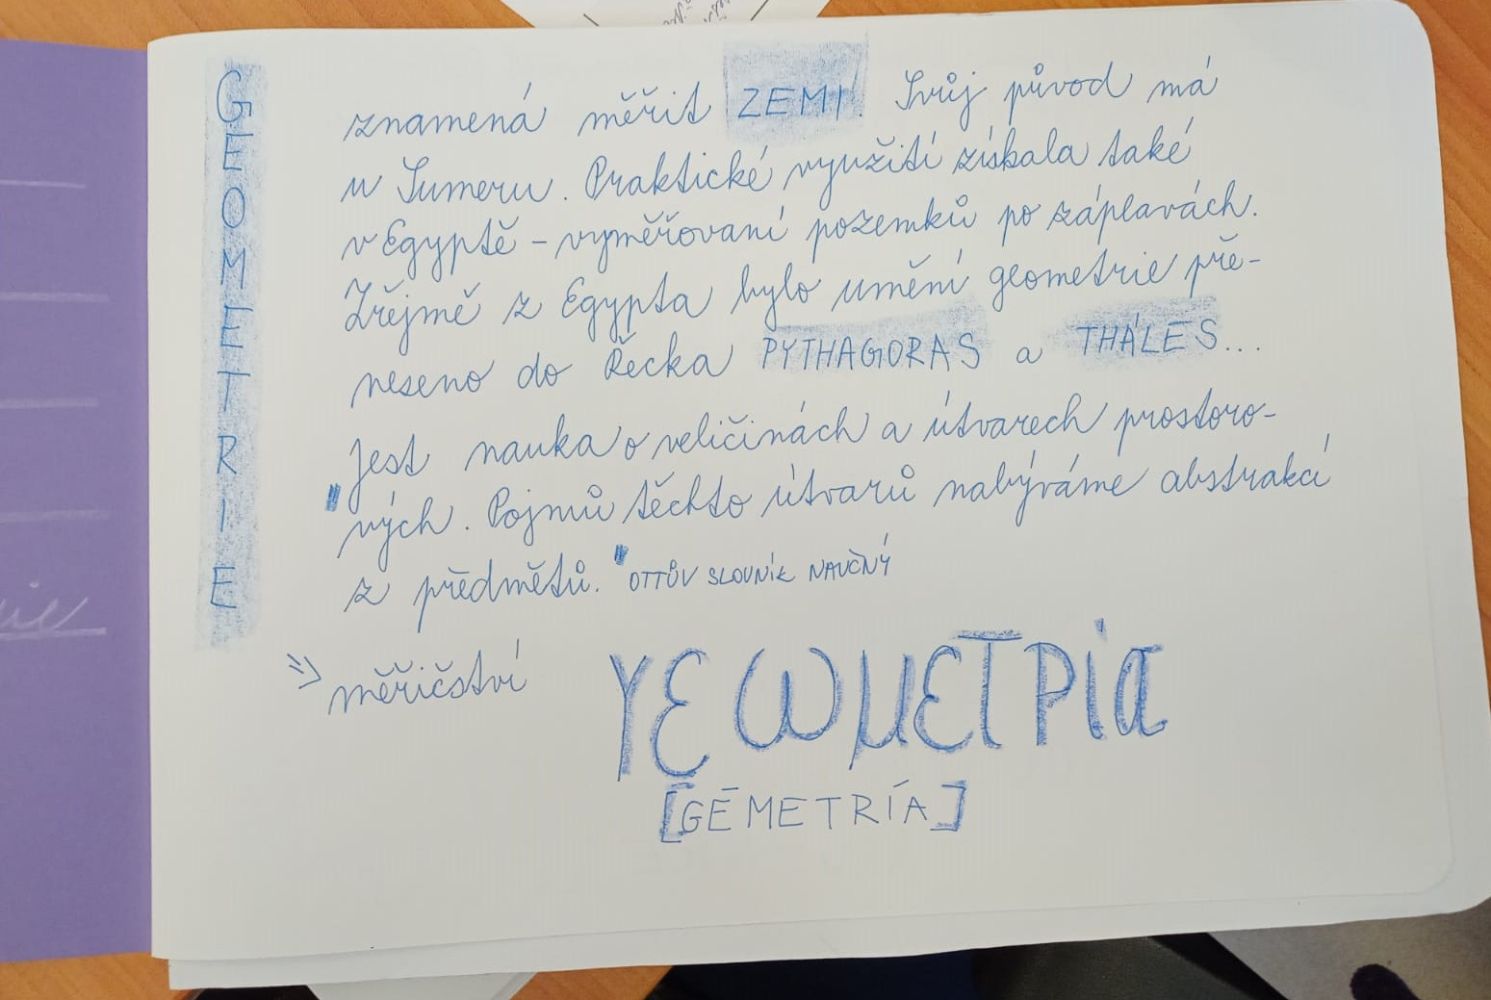 GEOMETRIE
znamená měřit ZEMI. Svůj původ má
u Sumeru. Praktické využití získala také
v Egyptě - vyměřovaní pozemků po záplavách.
Zřejmě z Egypta bylo umění geometrie pře-
neseno do Řecka PYTHAGORAS a THÁLES...
Jest nauka o veličinách a útvarech prostoro-
vých. Pojmů těchto útvarů nabýváme abstrakcí
z předmětů." OTTŮV SLOVNÍK NAUČNÝ
=> měřičství
γεωμετρία
[GĒMETRÍA]